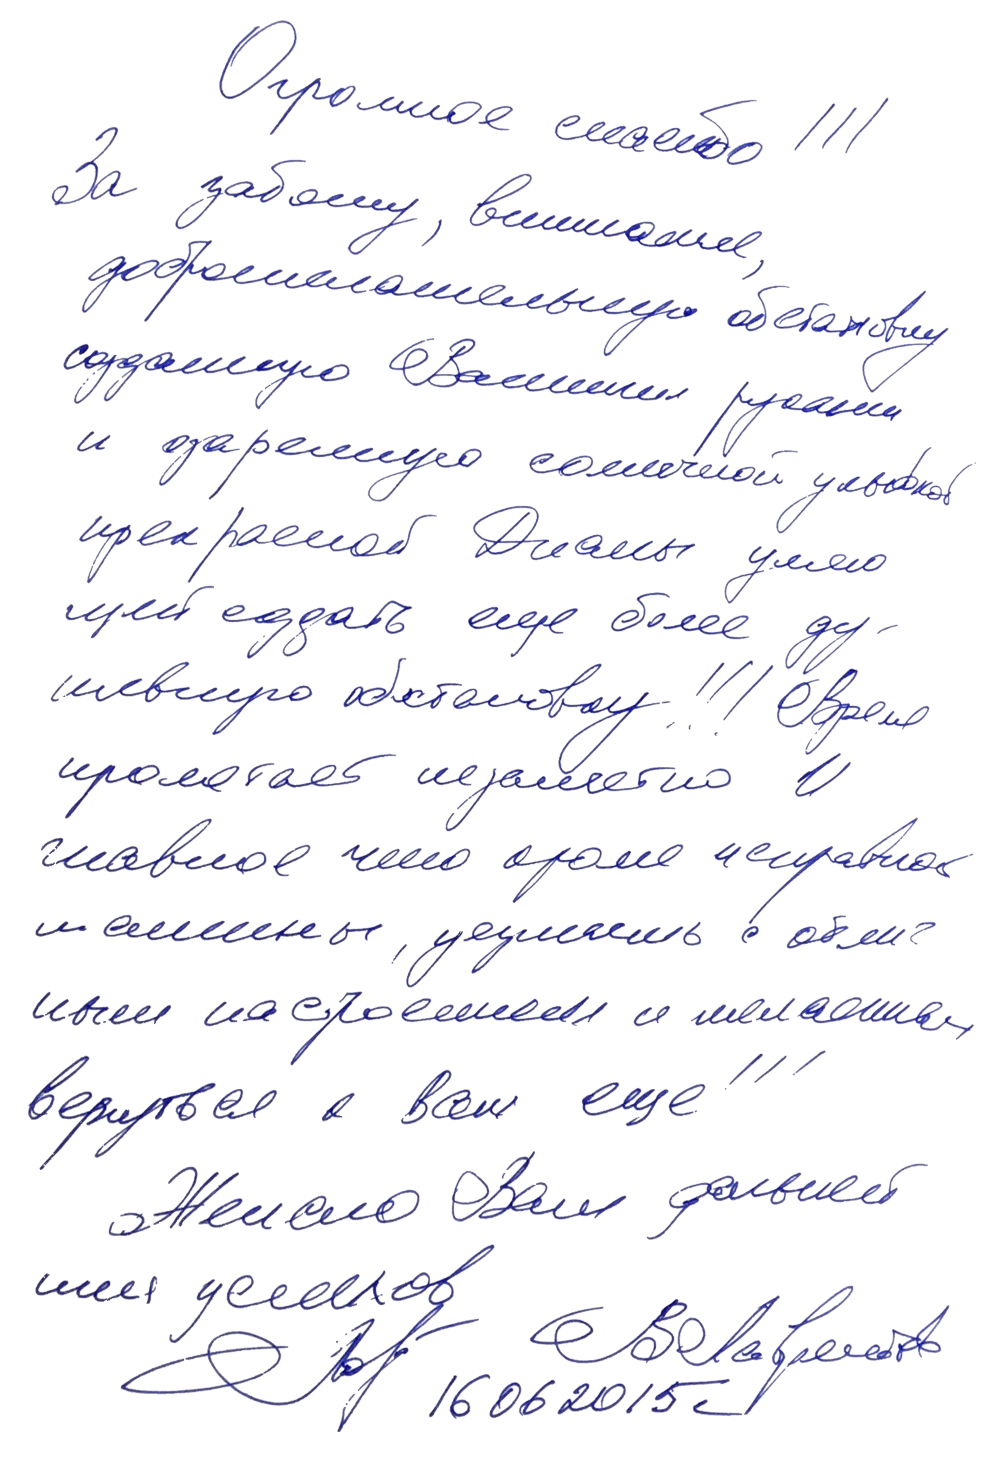 Огромное спасибо!!!
За заботу, внимание,
доброжелательную обстановку
созданную Вашими руками
и озаренную солнечной улыбкой
прекрасной Дианы умею
щей создать еще более ду-
шевную обстановку!!! Время
пролетает незаметно и
главное что кроме исправной
машины, уезжаешь с отлич
ным настроением и желанием
вернуться к вам еще!!!
Желаю Вам дальней
ших успехов
16 06 2015 г